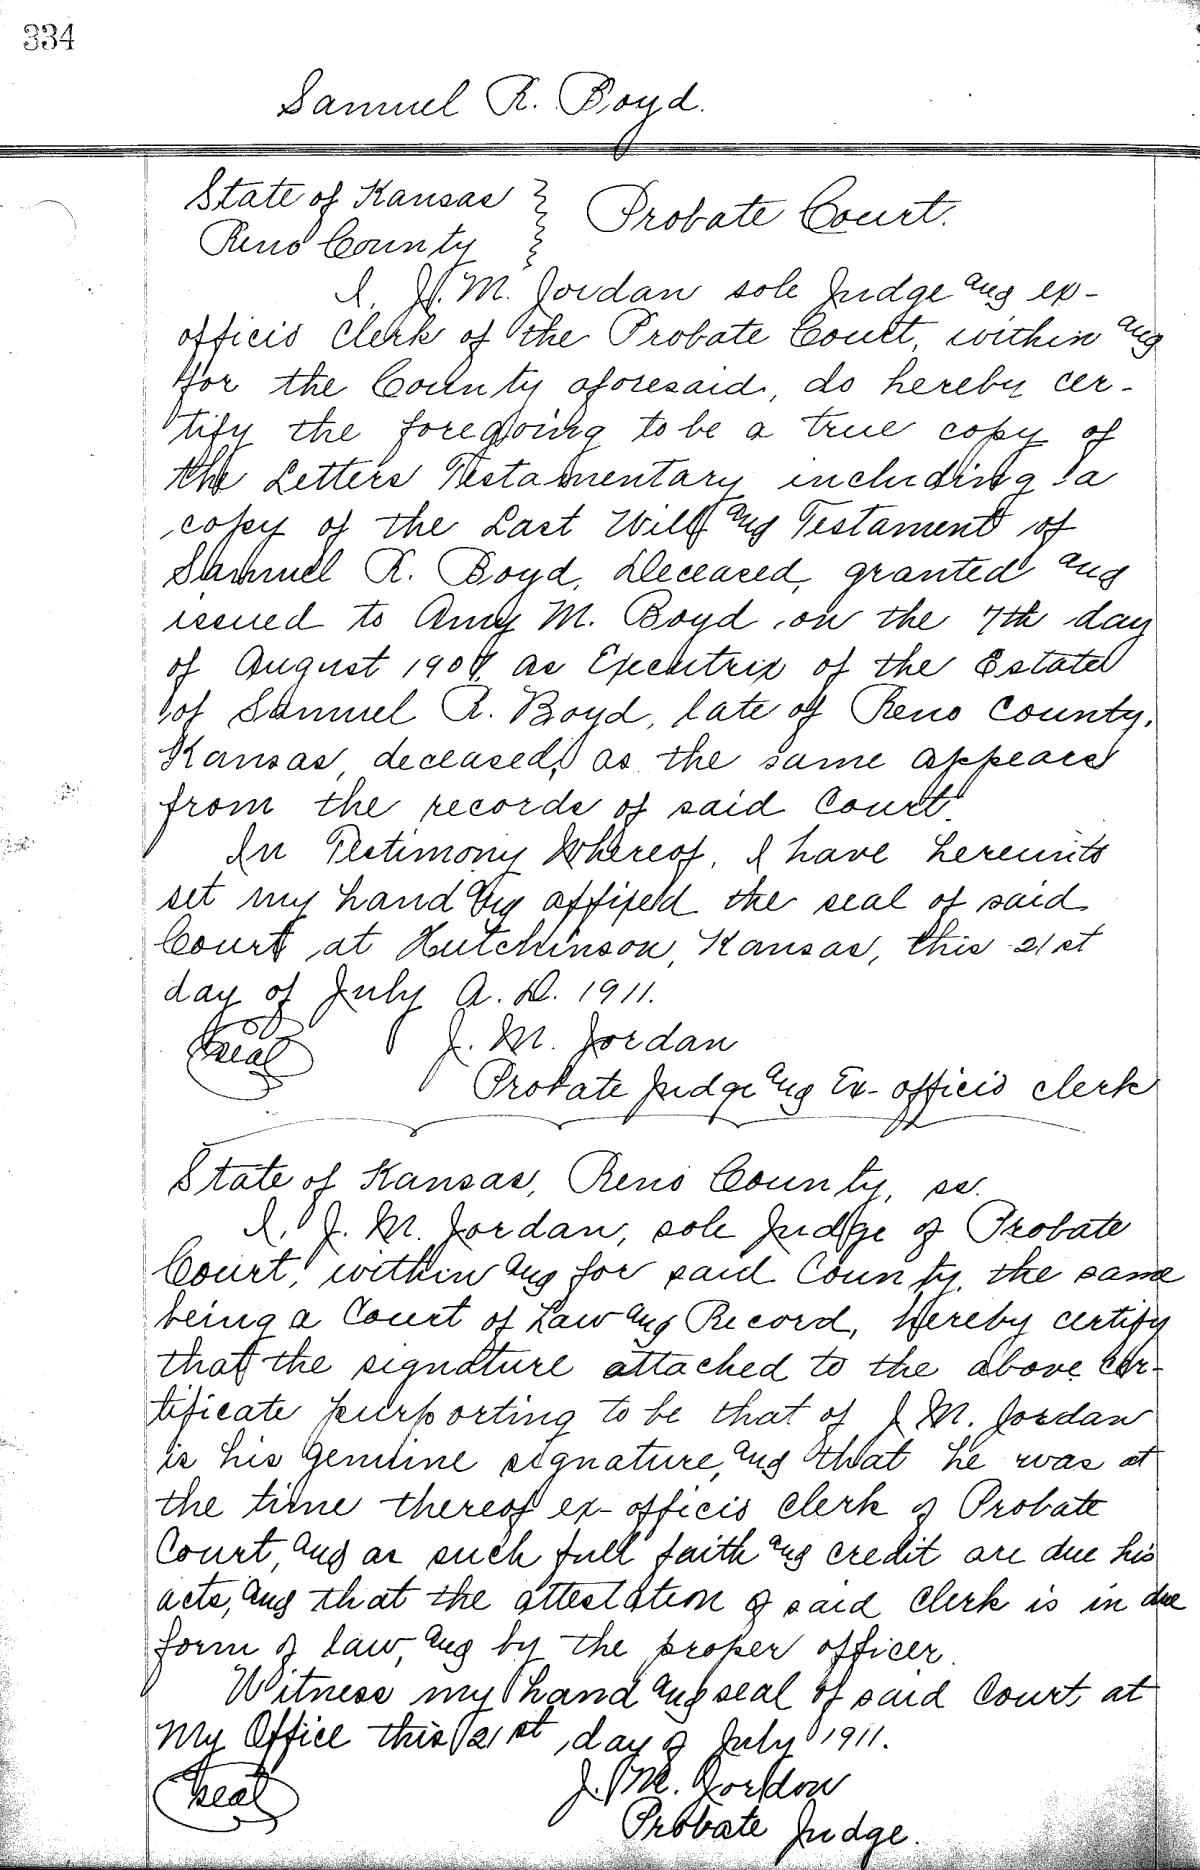 334
Samuel R. Boyd.
State of Kansas } Probate Court.
Reno County
I, J. M. Jordan sole Judge and ex-
officio Clerk of the Probate Court, within and
for the County aforesaid, do hereby cer-
tify the foregoing to be a true copy of
the Letters Testamentary including a
copy of the Last Will and Testament of
Samuel R. Boyd, Deceased, granted and
issued to Amy M. Boyd, on the 7th day
of August 190 as Executrix of the Estate
of Samuel R. Boyd, late of Reno County,
Kansas, deceased, as the same appears
from the records of said Court.
In Testimony Whereof, I have hereunto
set my hand and affixed the seal of said
Court at Hutchinson, Kansas, this 21st
day of July A. D. 1911.
Seal J. M. Jordan
Probate Judge and Ex-officio clerk
State of Kansas, Reno County, ss.
I, J. M. Jordan, sole Judge of Probate
Court, within and for said County, the same
being a Court of Law and Record, hereby certify
that the signature attached to the above cer-
tificate purporting to be that of J M. Jordan
is his genuine signature, and that he was at
the time thereof ex-officio clerk of Probate
Court, and as such full faith and credit are due his
acts, and that the attestation of said Clerk is in due
form of law, and by the proper officer.
Witness my hand and seal of said Court at
My Office this 21st, day of July 1911.
Seal J. M. Jordon
Probate Judge.